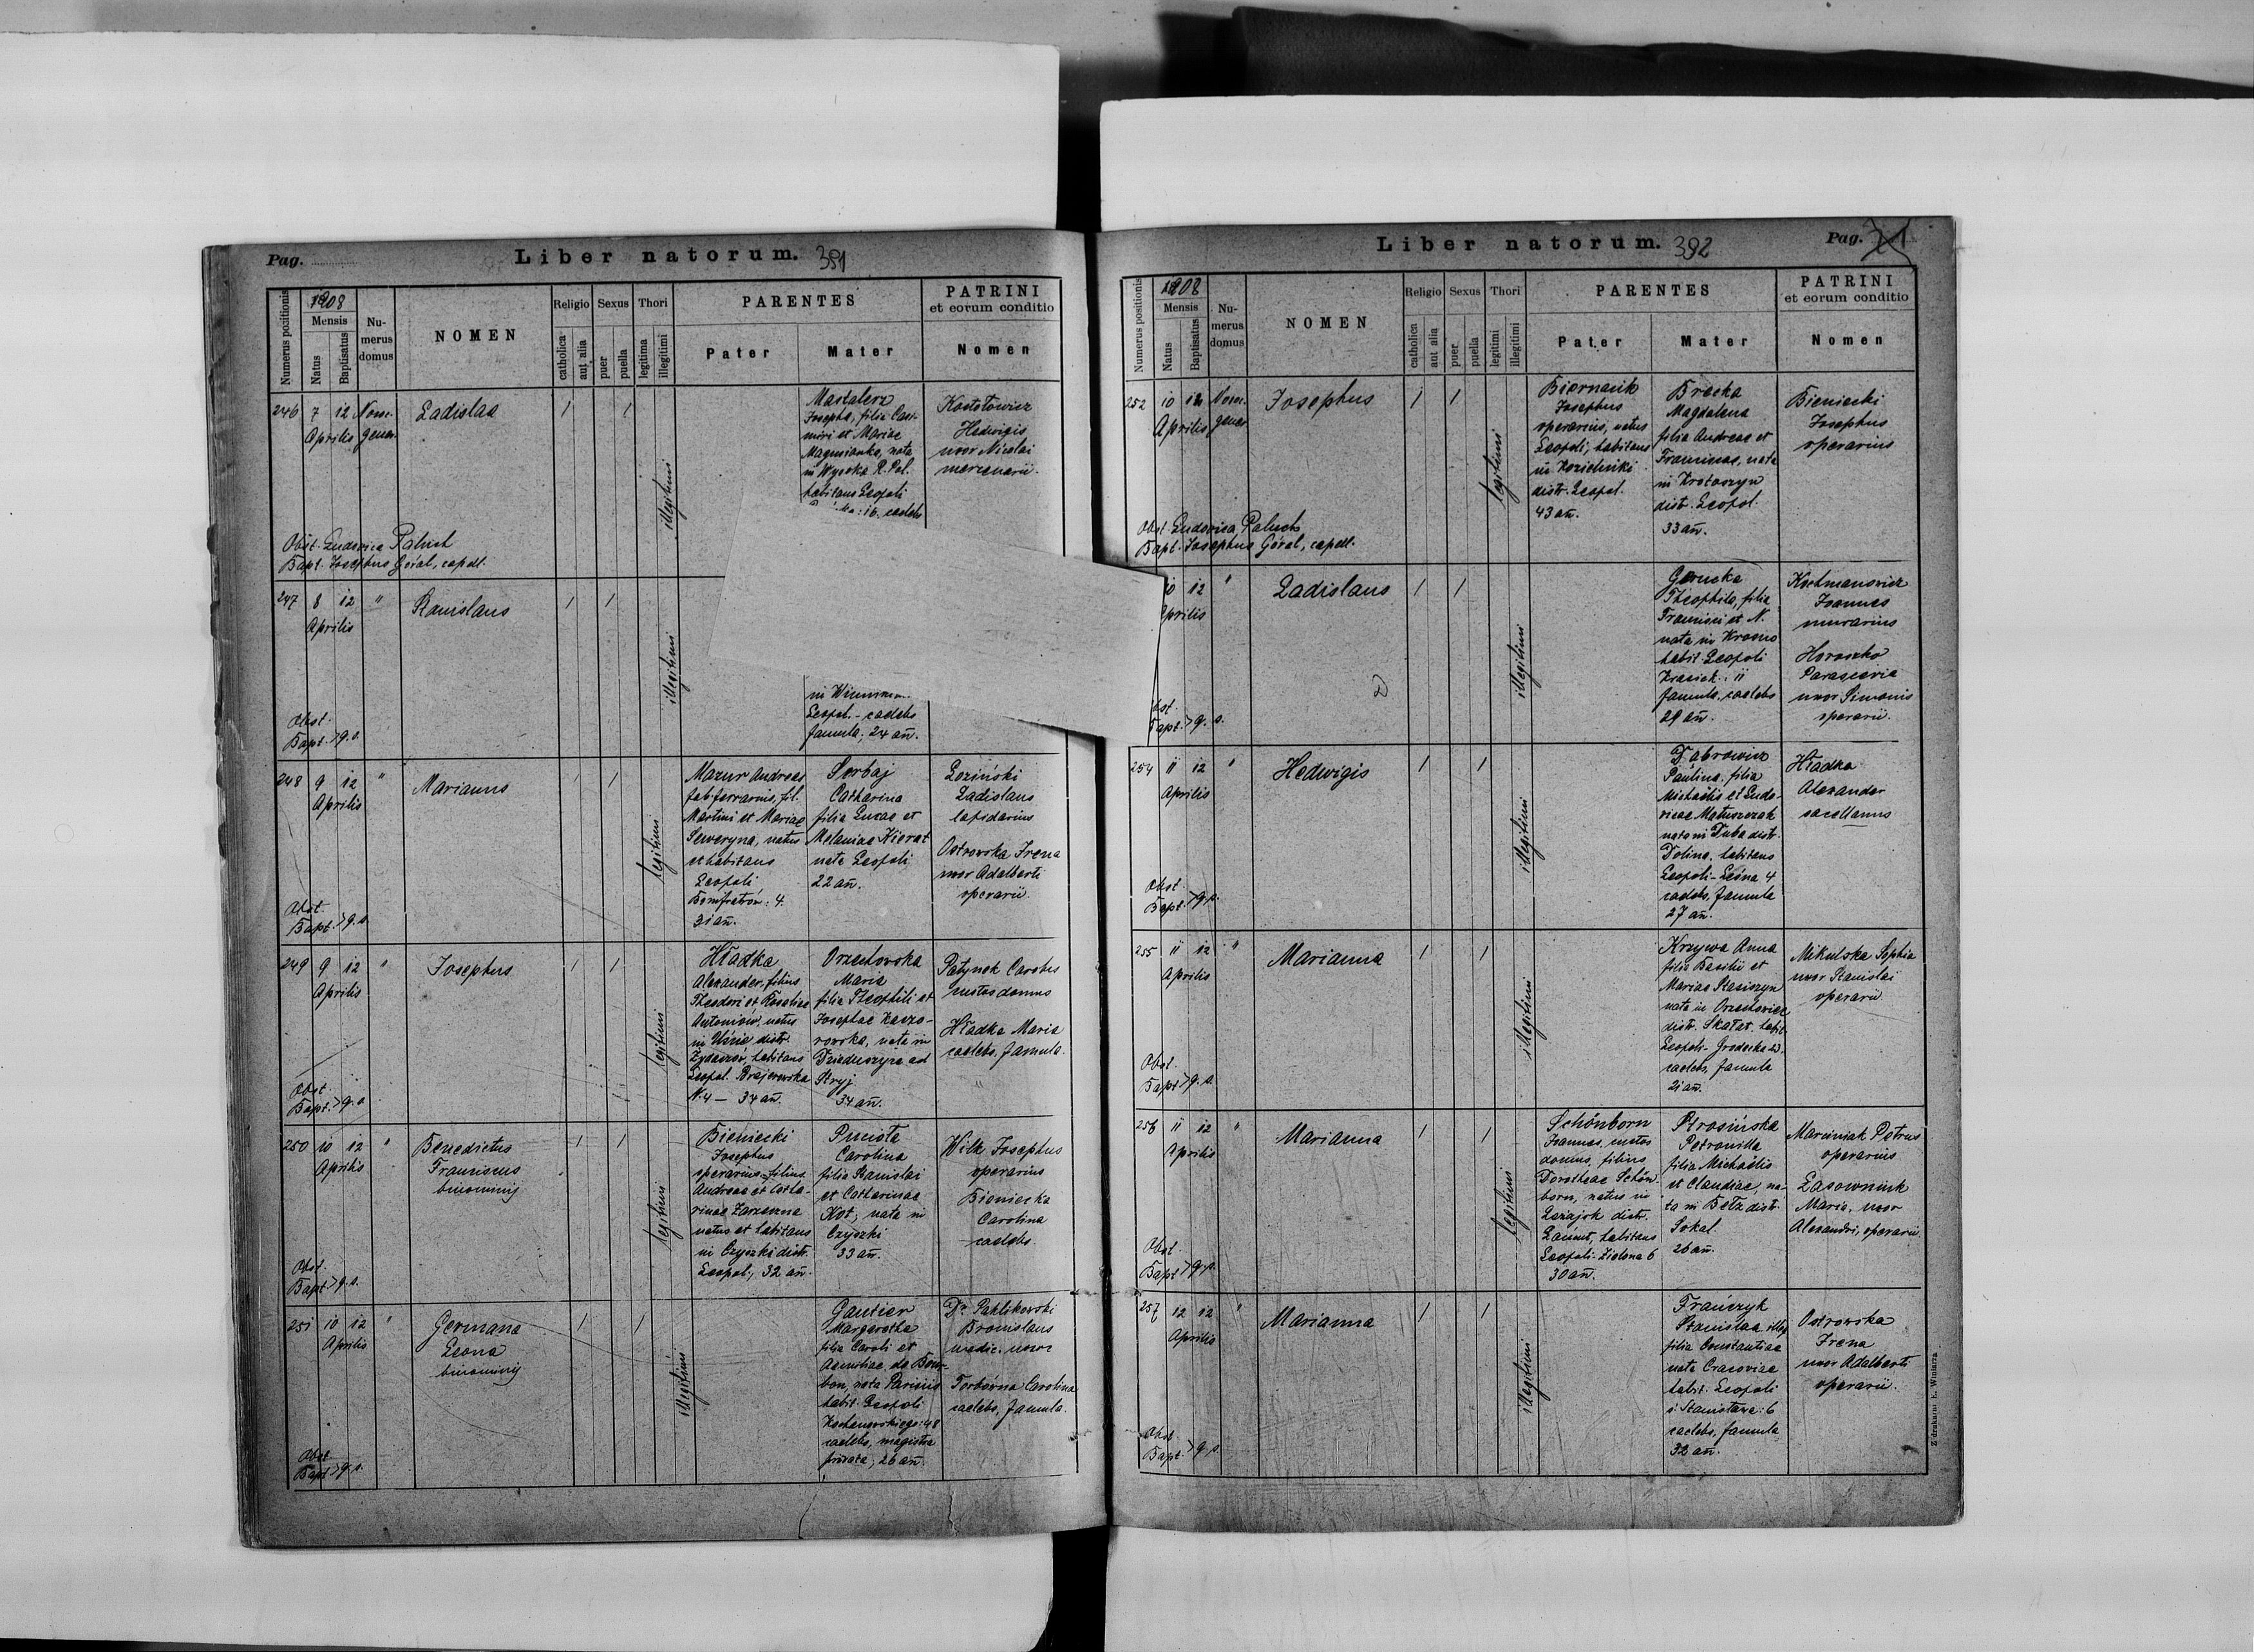 Pag.
Liber natorum. 391
Numerus positionis
1908
Mensis
Natus
Baptisatus
Numerus domus
NOMEN
Religio
catholica
aut alia
Sexus
puer
puella
Thori
legitima
illegitimi
PARENTES
Pater
Mater
PATRINI
et eorum conditio
Nomen
246 7 12 Nosoc.
Aprilis gener.
Ladislaa
1 1
illegitimi
Josepha, filia Casi-
miri et Mariae
nata
in Wysoka R. Pol.
habitans Leopoli
caelebs
Hedwigis
uxor Nicolai
mercenarii.
Obst. Ludovica Paluch
Bapt. Josephus Góral, capell.
247 8 12 "
Aprilis
Stanislaus
1 1
illegitimi
Leopol. - caelebs
famula, 24 an.
Obst.
Bapt. > q. s.
248 9 12 "
Aprilis
Marianus
1 1
legitimi
Mazur Andreas
fab. ferrarius, fil.
Martini et Mariae
Seweryna, natus
et habitans
Leopoli
Bonifratrów: 4.
31 an.
Serbaj
Catharina
filia Lucae et
Melaniae Kierat
nata Leopoli
22 an.
Łoziński
Ladislaus
lapidarius
Ostrowska Irena
uxor Adalberti
operarii.
Obst.
Bapt. > q. s.
249 9 12 "
Aprilis
Josephus
1 1
legitimi
Hładka
Alexander, filius
Theodori et Rosaliae
Antoniów, natus
in Uście distr.
Żydaczów, habitans
Leopol. Brajerowska
N. 4 - 34 an.
Orzechowska
Maria
filia Theophili et
Josephae Kaczo-
rowska, nata in
Dzieduszyce ad
Stryj
34 an.
Patynek Carolus
custos domus
Hładka Maria
caelebs, famula.
Obst.
Bapt. > q. s.
250 10 12 "
Aprilis
Benedictus
Franciscus
binominis
1 1
legitimi
Bieniecki
Josephus
operarius, filius
Andreae et Catha-
rinae Zarzeczna
natus et habitans
in Czyszki distr.
Leopol., 32 an.
Carolina
filia Stanislai
et Catharinae
Kot, nata in
Czyszki
33 an.
Wilk Josephus
operarius
Bieniecka
Carolina
caelebs.
Obst.
Bapt. > q. s.
251 10 12 "
Aprilis
Germana
Leona
binominis
1 1
illegitimi
Gautier
Margaretha
filia Caroli et
Aemiliae de Bour-
bon, nata Parisiis
habit. Leopoli
Kochanowskiego: 48
caelebs, magistra
privata, 26 an.
Dr. Pahlikowski
Bronislaus
medic.
Torbówna Carolina
caelebs, famula.
Obst.
Bapt. > q. s.
Liber natorum. 392
Pag.
Numerus positionis
1908
Mensis
Natus
Baptisatus
Numerus domus
NOMEN
Religio
catholica
aut alia
Sexus
puer
puella
Thori
legitimi
illegitimi
PARENTES
Pater
Mater
PATRINI
et eorum conditio
Nomen
252 10 12 Nosoc.
Aprilis gener.
Josephus
1 1
legitimi
Biernacik
Josephus
operarius, natus
Leopoli, habitans
in Kozielniki
distr. Leopol.
43 an.
Brecka
Magdalena
filia Andreae et
Franciscae, nata
in Krotoszyn
distr. Leopol.
33 an.
Bieniecki
Josephus
operarius
Obst. Ludovica Paluch
Bapt. Josephus Góral, capell.
12 "
Aprilis
Ladislaus
1 1
illegitimi
Theophila, filia
Francisci et N.
nata in Krosno
habit. Leopoli
11
famula, caelebs
29 an.
Kochmanowicz
Joannes
murarius
Horoszko
Parascevia
uxor Simonis
operarii.
Obst.
Bapt. > q. s.
254 11 12 "
Aprilis
Hedwigis
1 1
illegitimi
Dąbrowicz
Paulina, filia
Michaëlis et Ludo-
vicae Matuszczak
nata in Duba distr.
Dolina, habitans
Leopoli - Leśna 4
caelebs, famula
27 an.
Hładka
Alexander
sacellanus
Obst.
Bapt. > q. s.
255 11 12 "
Aprilis
Marianna
1 1
illegitimi
Krzywa Anna
filia Basilii et
Mariae Stasiszyn
nata in Orzechowiec
distr. Skałat, habit.
Leopoli - Grodecka
caelebs, famula
21 an.
Mikulska Sophia
uxor Stanislai
operarii
Obst.
Bapt. > q. s.
256 11 12 "
Aprilis
Marianna
1 1
legitimi
Schönborn
Joannes, custos
domus, filius
Dorotheae Schön-
born, natus in
Leżajsk distr.
Łańcut, habitans
Leopoli - Zielona 6
30 an.
Strosińska
Petronilla
filia Michaëlis
et Claudiae, na-
ta in Bełz distr.
Sokal
26 an.
Marciniak Petrus
operarius
Lasowniuk
Maria, uxor
Alexandri, operarii
Obst.
Bapt. > q. s.
257 12 12 "
Aprilis
Marianna
1 1
illegitimi
Frańczyk
Stanislaa illeg.
filia Constantiae
nata Cracoviae
habit. Leopoli
s. Stanisława: 6
caelebs, famula
32 an.
Ostrowska
Irena
uxor Adalberti
operarii.
Obst.
Bapt. > q. s.
Z drukarni E. Winiarza